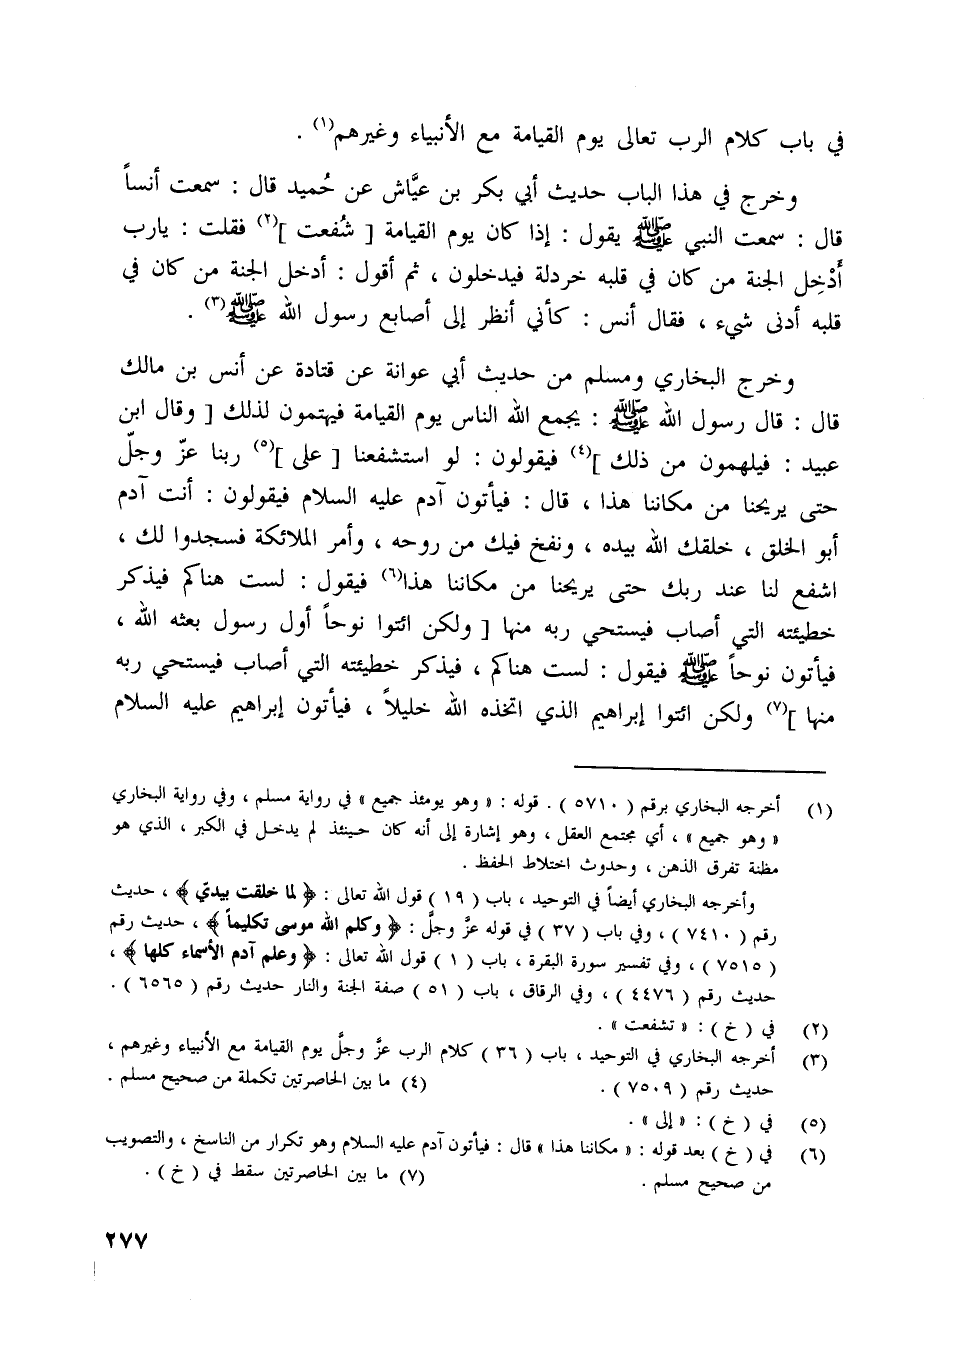 في باب كلام الرب تعالى يوم القيامة مع الأنبياء وغيرهم(١) .
وخرج في هذا الباب حديث أبي بكر بن عيَّاش عن حُميد قال : سمعت أنساً
قال : سمعت النبي ﷺ يقول : إذا كان يوم القيامة [ شُفعت ](٢) فقلت : يارب
أَدْخِل الجنة من كان في قلبه خردلة فيدخلون ، ثم أقول : أدخل الجنة من كان في
قلبه أدنى شيء ، فقال أنس : كأني أنظر إلى أصابع رسول الله ﷺ(٣) .
وخرج البخاري ومسلم من حديث أبي عوانة عن قتادة عن أنس بن مالك
قال : قال رسول الله ﷺ : يجمع الله الناس يوم القيامة فيهتمون لذلك [ وقال ابن
عبيد : فيلهمون من ذلك ](٤) فيقولون : لو استشفعنا [ على ](٥) ربنا عزّ وجلّ
حتى يريحنا من مكاننا هذا ، قال : فيأتون آدم عليه السلام فيقولون : أنت آدم
أبو الخلق ، خلقك الله بيده ، ونفخ فيك من روحه ، وأمر الملائكة فسجدوا لك ،
اشفع لنا عند ربك حتى يريحنا من مكاننا هذا(٦) فيقول : لست هناكم فيذكر
خطيئته التي أصاب فيستحي ربه منها [ ولكن ائتوا نوحاً أول رسول بعثه الله ،
فيأتون نوحاً ﷺ فيقول : لست هناكم ، فيذكر خطيئته التي أصاب فيستحي ربه
منها ](٧) ولكن ائتوا إبراهيم الذي اتخذه الله خليلاً ، فيأتون إبراهيم عليه السلام
(١) أخرجه البخاري برقم ( ٥٧١٠ ) . قوله : « وهو يومئذ جميع » في رواية مسلم ، وفي رواية البخاري
« وهو جميع » ، أي مجتمع العقل ، وهو إشارة إلى أنه كان حينئذ لم يدخل في الكبر ، الذي هو
مظنة تفرق الذهن ، وحدوث اختلاط الحفظ .
وأخرجه البخاري أيضاً في التوحيد ، باب ( ١٩ ) قول الله تعالى : ﴿ لما خلقت بيديّ ﴾ ، حديث
رقم ( ٧٤١٠ ) ، وفي باب ( ٣٧ ) في قوله عزَّ وجلَّ : ﴿ وكلم الله موسى تكليماً ﴾ ، حديث رقم
( ٧٥١٥ ) ، وفي تفسير سورة البقرة ، باب ( ١ ) قول الله تعالى : ﴿ وعلم آدم الأسماء كلها ﴾ ،
حديث رقم ( ٤٤٧٦ ) ، وفي الرقاق ، باب ( ٥١ ) صفة الجنة والنار حديث رقم ( ٦٥٦٥ ) .
(٢) في ( خ ) : « تشفعت » .
(٣) أخرجه البخاري في التوحيد ، باب ( ٣٦ ) كلام الرب عزَّ وجلَّ يوم القيامة مع الأنبياء وغيرهم ،
حديث رقم ( ٧٥٠٩ ) . (٤) ما بين الحاصرتين تكملة من صحيح مسلم .
(٥) في ( خ ) : « إلى » .
(٦) في ( خ ) بعد قوله : « مكاننا هذا » قال : فيأتون آدم عليه السلام وهو تكرار من الناسخ ، والتصويب
من صحيح مسلم . (٧) ما بين الحاصرتين سقط في ( خ ) .
٢٧٧